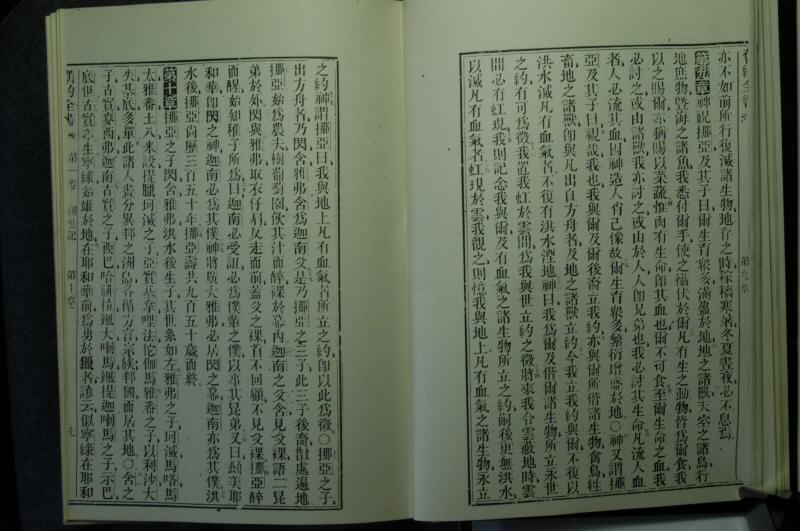 舊約全書
亦不如前所行復滅諸生物地存之時稼穡寒暑冬夏晝夜必不息焉
第九章神祝挪亞及其子曰爾生育衆多滿盈於地地之諸獸天空之諸鳥行
地庶物暨海之諸魚我悉付爾手使之懾伏於爾凡有生之動物皆爲爾食我
以之賜爾亦猶賜以菜蔬惟肉有生命即其血也爾不可食至爾生命之血我
必討之或由諸獸我亦討之或由於人人即兄弟也我必討其生命凡流人血
者人必流其血因神造人肖己像故爾生育衆多繁衍增盛於地○神又謂挪
亞及其子曰視哉我也我與爾及爾後裔立我約亦與爾所偕諸生物禽鳥牲
畜地之諸獸即與凡出自方舟者及地之諸獸立約今我立我約與爾不復以
洪水滅凡有血氣者不復有洪水湮地神曰我爲爾及偕爾諸生物所立永世
之約有可爲徵我置我虹於雲間爲我與世立約之徵將來我令雲蔽地時雲
間必有虹現我則記念我與爾及有血氣之諸生物所立之約嗣後更無洪水
以滅凡有血氣者虹現於雲我觀之則憶我與地上凡有血氣之諸生物永立
之約神謂挪亞曰我與地上凡有血氣者所立之約即以此爲徵○挪亞之子
出方舟者乃閃含雅弗含爲迦南父是乃挪亞之三子此三子後裔散處遍地
挪亞始爲農夫樹葡萄園飲其汁而醉裸於幕內迦南之父含見父裸語二昆
弟於外閃與雅弗取衣仔肩反走而前蓋父之裸首不回顧不見父裸挪亞醉
而醒始知稚子所爲曰迦南必受詛必爲僕輩之僕以事其昆弟又曰頌美耶
和華即閃之神迦南必爲其僕神將廣大雅弗必居閃之幕迦南亦爲其僕洪
水後挪亞尚歷三百五十年挪亞壽共九百五十歲而終
第十章挪亞之子閃含雅弗洪水後生子其世系如左雅弗之子坷滅馬咯馬
太雅番土八米設提臘坷滅之子亞實基拿哩法陀伽馬雅番之子以利沙大
失其底多單此諸人畫分異邦之洲島各循方言宗族邦國而居其地○含之
子古實麥西弗迦南古實之子西巴哈腓拉撒大喇馬撒提迦喇馬之子示巴
底但古實亦生寧綠始雄於地在耶和華前爲勇於獵者諺云似寧綠在耶和
舊約全書 第一卷 創世記 第十章 七